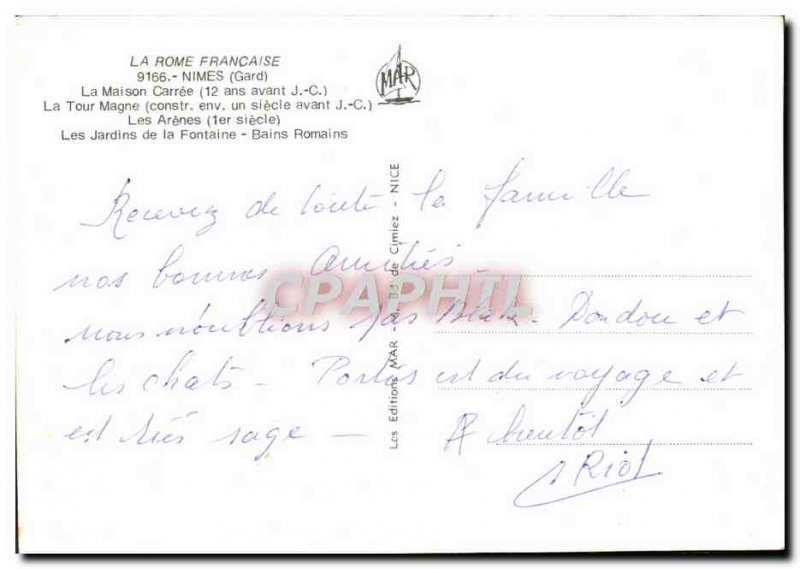 LA ROME FRANÇAISE
9166.- NIMES (Gard)
La Maison Carrée (12 ans avant J.-C.)
La Tour Magne (constr. env. un siècle avant J.-C.)
Les Arènes (1er siècle)
Les Jardins de la Fontaine - Bains Romains
MAR
Recevez de toute la famille
nos bonnes amitiés
nous n'oublions pas Doudou et
les chats - Portos est du voyage et
est très sage - A bientôt
Riot
Les Editions MAR - Bd de Cimiez - NICE
CPAPHIL